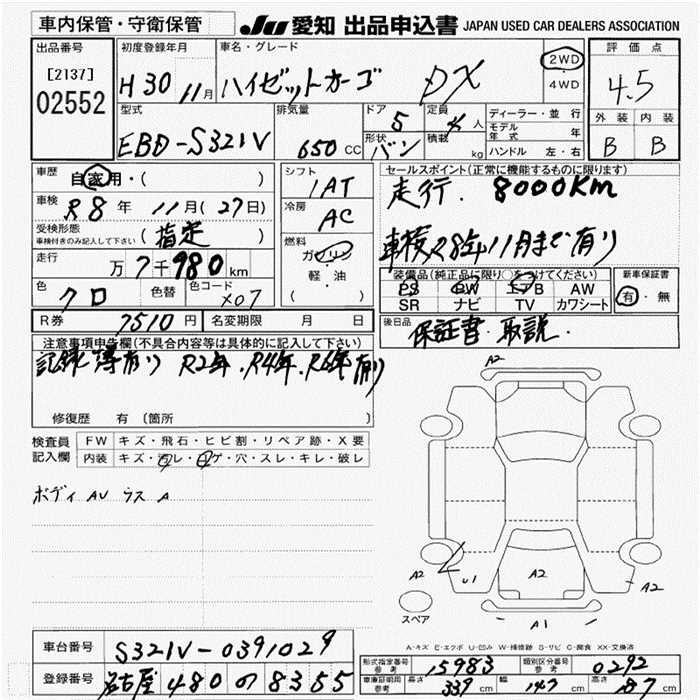 車内保管・守衛保管 JU 愛知 出品申込書 JAPAN USED CAR DEALERS ASSOCIATION
出品番号 初度登録年月 車名・グレード 評価点
[2137] H30 11月 ハイゼットカーゴ DX 2WD 4WD 4.5
02552
型式 排気量 ドア 定員 ディーラー・並行 外装 内装
EBD-S321V 650 CC 5 4人 モデル年式 年 B B
形状 バン 積載 kg ハンドル 左・右
車歴 自家用・( ) シフト 1AT セールスポイント(正常に機能するものに限ります)
車検 R8年 11月(27日) 冷房 AC 走行. 8000Km
受検形態 車検付きのみ記入して下さい (指定) 車検R8年11月まで有り
走行 万7千980km 燃料 ガソリン・軽・油 ( )
装備品(純正品に限り○をつけてください) 新車保証書
PS PW エアB AW 有・無
SR ナビ TV カワシート
色 クロ 色替 色コード X07
R券 7510円 名変期限 月 日 後日品 保証書. 取説.
注意事項申告欄(不具合内容等は具体的に記入して下さい)
記録簿有り R2年.R4年.R6年有り
修復歴 有 (箇所
検査員記入欄 FW キズ・飛石・ヒビ割・リペア跡・X要
内装 キズ・汚レ・コゲ・穴・スレ・キレ・破レ
ボディ AU ウス A
A2
A2 U1 A2 A2
スペア A1
A-キズ E-エクボ U-凹み W-補修跡 S-サビ C-腐食 XX-交換済
車台番号 S321V-0391029
登録番号 名古屋 480 の 8355
型式指定番号 参考 15983 類別区分番号 参考 0292
車庫証明用 参考 長さ 339 cm 幅 147 cm 高さ 187 cm